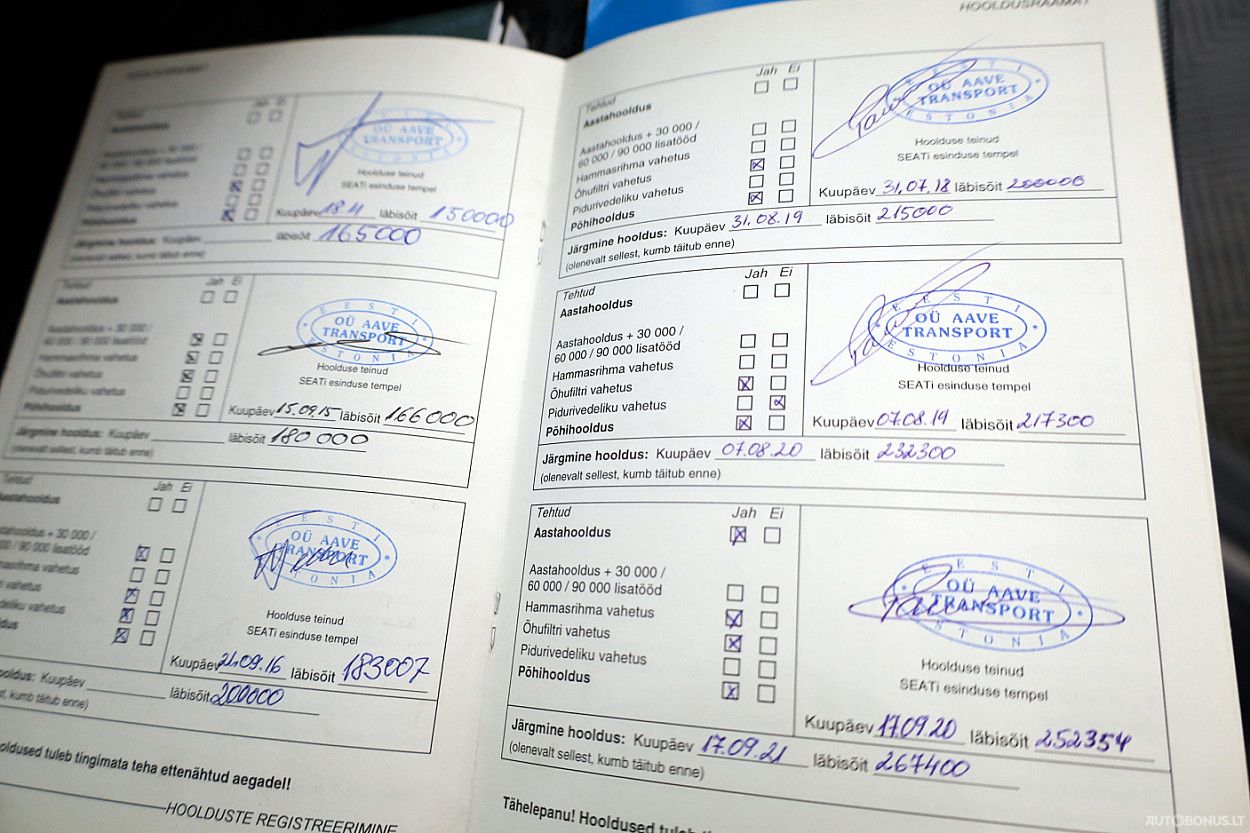 Tehtud Jah Ei
Aastahooldus
Aastahooldus + 30 000 /
60 000 / 90 000 lisatööd
Hammasrihma vahetus
Õhufiltri vahetus
Põhihooldus
EESTI
OÜ AAVE
TRANSPORT
ESTONIA
Hoolduse teinud
SEATi esinduse tempel
Kuupäev läbisõit 150000
Järgmine hooldus: Kuupäev läbisõit 165000
(olenevalt sellest, kumb täitub enne)
Tehtud Jah Ei
Aastahooldus
Aastahooldus + 30 000 /
60 000 / 90 000 lisatööd
Hammasrihma vahetus
Õhufiltri vahetus
Pidurivedeliku vahetus
Põhihooldus
EESTI
OÜ AAVE
TRANSPORT
ESTONIA
Hoolduse teinud
SEATi esinduse tempel
Kuupäev 15.09.15 läbisõit 166000
Järgmine hooldus: Kuupäev läbisõit 180 000
(olenevalt sellest, kumb täitub enne)
Tehtud Jah Ei
astahooldus
astahooldus + 30 000 /
000 / 90 000 lisatööd
masrihma vahetus
ri vahetus
vedeliku vahetus
ldus
EESTI
OÜ AAVE
TRANSPORT
ESTONIA
Hoolduse teinud
SEATi esinduse tempel
Kuupäev 21.09.16 läbisõit 183007
ooldus: Kuupäev läbisõit 200000
st, kumb täitub enne)
oldused tuleb tingimata teha ettenähtud aegadel!
HOOLDUSTE REGISTREERIMINE
HOOLDUSRAAMAT
Tehtud Jah Ei
Aastahooldus
Aastahooldus + 30 000 /
60 000 / 90 000 lisatööd
Hammasrihma vahetus
Õhufiltri vahetus
Pidurivedeliku vahetus
Põhihooldus
EESTI
OÜ AAVE
TRANSPORT
ESTONIA
Hoolduse teinud
SEATi esinduse tempel
Kuupäev 31.07.18 läbisõit 200000
Järgmine hooldus: Kuupäev 31.08.19 läbisõit 215000
(olenevalt sellest, kumb täitub enne)
Tehtud Jah Ei
Aastahooldus
Aastahooldus + 30 000 /
60 000 / 90 000 lisatööd
Hammasrihma vahetus
Õhufiltri vahetus
Pidurivedeliku vahetus
Põhihooldus
EESTI
OÜ AAVE
TRANSPORT
ESTONIA
Hoolduse teinud
SEATi esinduse tempel
Kuupäev 07.08.19 läbisõit 217300
Järgmine hooldus: Kuupäev 07.08.20 läbisõit 232300
(olenevalt sellest, kumb täitub enne)
Tehtud Jah Ei
Aastahooldus
Aastahooldus + 30 000 /
60 000 / 90 000 lisatööd
Hammasrihma vahetus
Õhufiltri vahetus
Pidurivedeliku vahetus
Põhihooldus
EESTI
OÜ AAVE
TRANSPORT
ESTONIA
Hoolduse teinud
SEATi esinduse tempel
Kuupäev 17.09.20 läbisõit 252354
Järgmine hooldus: Kuupäev 17.09.21 läbisõit 267400
(olenevalt sellest, kumb täitub enne)
Tähelepanu! Hooldused tuleb
AUTOBONUS.LT